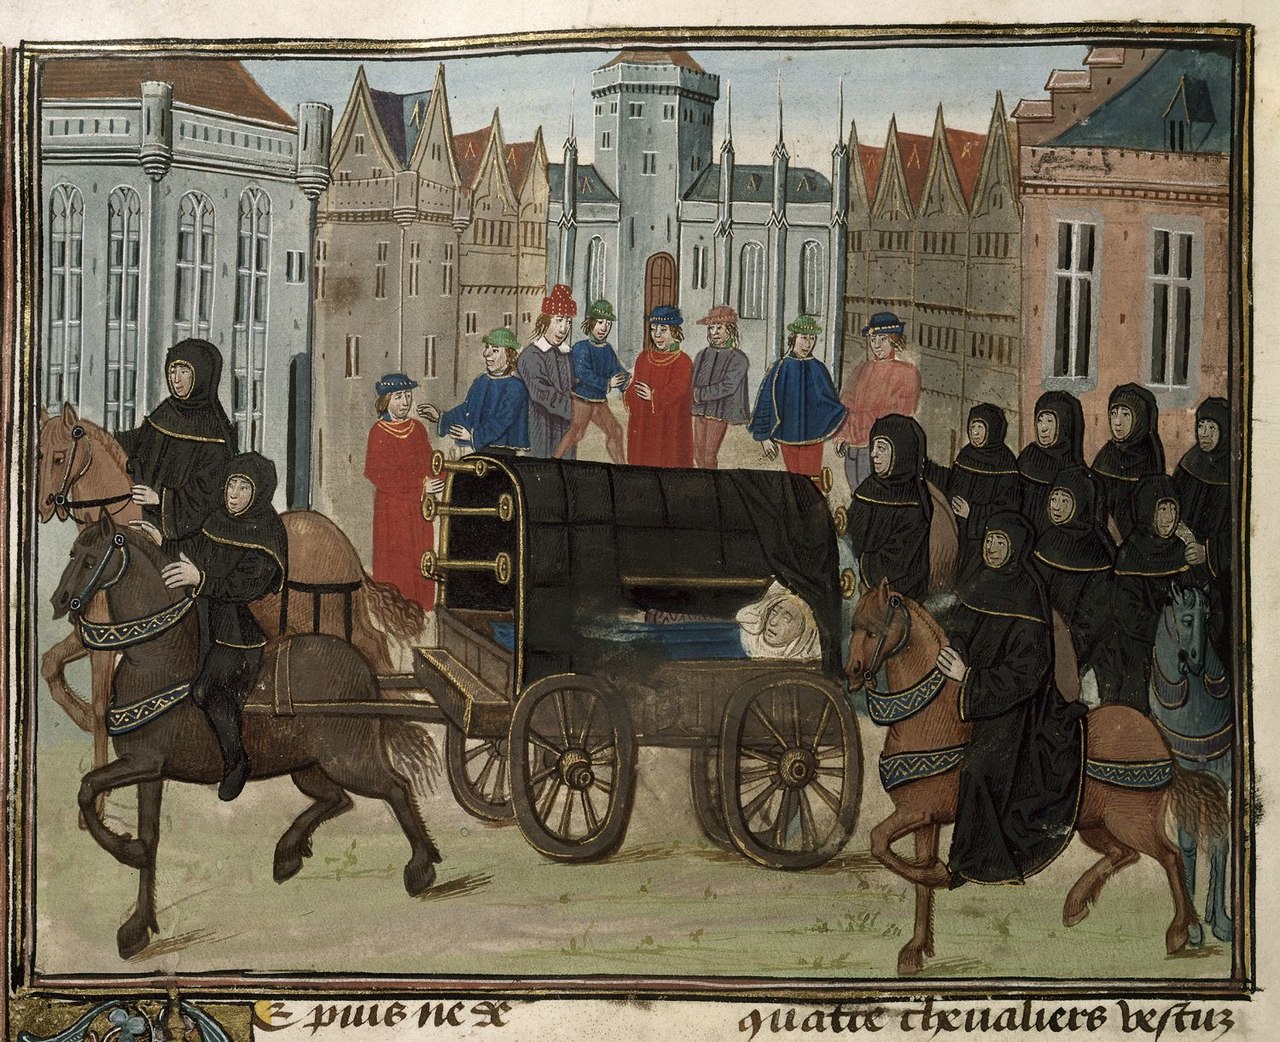 E puis ne de
quatre chevaliers vestuz